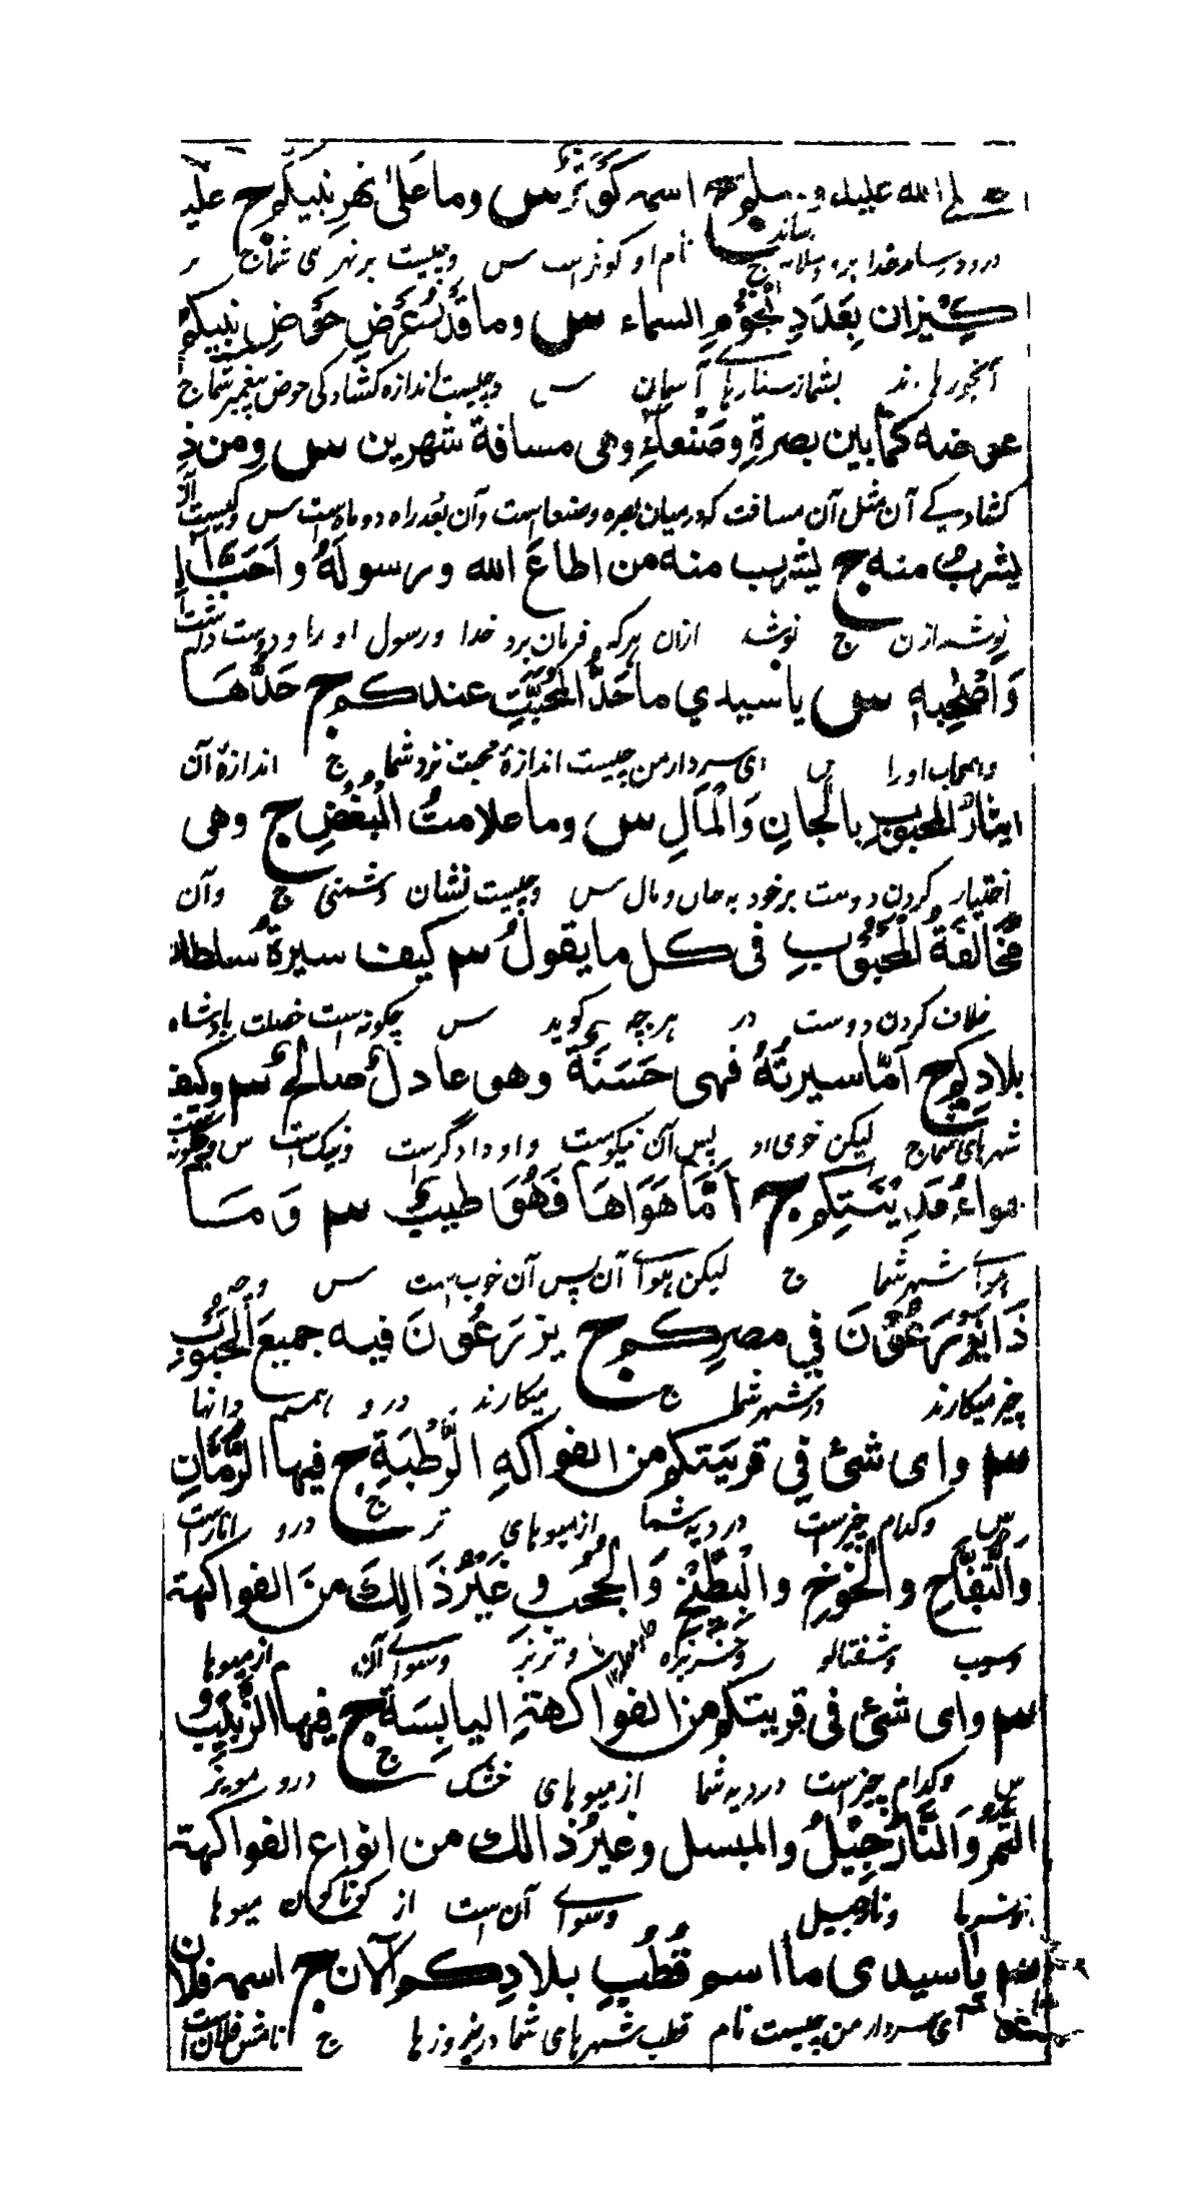 صلے الله عليه وسلم ج اسمه كَوْثَرُ س وما عَلىٰ نهرِ نبيكم ج عليه
درود رساند خدا برو وسلام ج نام او کوثر است س وچیست بر نهر نبی شما ج بر
كِيْزان بِعَدَدِ نُجُوْمِ السماء س وما قَدْرُ عَرْضِ حَوْضِ نبيكم
آبخورها اند بشمار ستارہاے آسمان س وچیست اندازہ کشادگی حوض پیغمبر شما ج
عرضه كَمَا بين بصرةِ وصَنْعاءِ وهى مسافة شهرين س ومن ذا
کشادگی آن مثل آن مسافت که درمیان بصره وصنعا است وآن بُعد راه دو ماه است س وکیست آنکہ
يشربُ منه ج يشرب منه من اطاعَ الله ورسولَهُ واَحَبَّ آلِهٖ
نوشد ازن ج نوشد ازان هرکه فرمان برد خدا ورسول او را ودوست داشت
وَاَصْحٰبِهٖ س يا سيدي ما حَدُّ المُحَبَّتِ عندكم ج حَدُّهَا
واصحاب او را س ای سردار من چیست اندازهٔ محبت نزد شما ج اندازهٔ آن
ايثارُ المحبوبِ بالْجَانِ وَالْمَالِ س وما علامتُ الْبُغْضِ ج وهى
اختیار کردن دوست بر خود به جان ومال س وچیست نشان دشمنی ج وآن
مُخَالَفَةُ الْمَحْبُوْبِ فى كل ما يقولُ س كيف سيرةُ سلطان
خلاف کردن دوست در هرچه گوید س چگونه است خصلت بادشاه
بلادِكم ج اَمَّا سيرتُهُ فهى حَسَنَةٌ وهو عادلٌ صالحٌ س وكيف
شهرهای شما ج لیکن خوی او پس آن نیکوست واو دادگرست ونیک است س وچگونه است
هواءُ مَدِيْنَتِكم ج اَمَّا هَوَاهَا فَهُوَ طيبٌ س وَمَا
هواے شهر شما ج لیکن هواے آن پس آن خوب است س وچه
ذَا يَزْرَعُوْنَ فِي مصرِكم ج يزرَعُوْنَ فيه جميعَ الْحُبُوْبِ
چیز میکارند در شهر شما ج میکارند درو همه دانها
س واى شئٍ فِي قريَتكم من الفواكهِ الرَّطْبَةِ ج فيها الرُّمَّانِ
س وکدام چیز است در دیه شما از میوهای تر ج درو انار است
وَالتُّفَّاحِ والْخَوْخِ والْبِطِّيْخِ وَالْحبحب وغَيْرُ ذَالِكَ مِنَ الفواكهة
وسیب وشفتالو وخربزه وتربز وسواے آن از میوها
س واى شئٍ فى قريتكم من الفواكهةِ اليابِسَةِ ج فيها الزَّبِيْبُ و
س وکدام چیز است در دیه شما از میوهای خشک ج درو مویز
التَّمْرُ وَالنَّارْجِيْلُ والمبسل وغيرُ ذالك من انواعِ الفواكهة
وخرما ونارجیل وسواے آن است از گوناگون میوها
س يا سيدى ما اسم قُطْبِ بلادِكم الآن ج اسمه فلان
س ای سردار من چیست نام قطب شهرهای شما درین روزها ج نامش فلان است